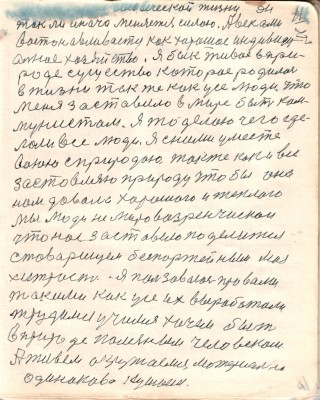 ической жизни 54
так ли иначе меняет силою. А векам
востонавливасту как хорошое индивиду
алное хозяйство. Я был живое в при
роде существо которое родилос
в жизни так же как усе люди. Это
меня заставило в мире быть ком
мунистам. Я то делаю чего сде
лали все люди. Я сними уместе
воюю с природою. также как и все
заставляю природу чтобы она
нам довала хорошого и теплого
мы люди не мировозренчиском
что нас заставило поделится
с товарищем беспортейным
хитрости. Я ползовался провами
такими как усе их выработали
трудился учился хачем быть
в природе полезным человеком
А живём окружаемся материално
одинаково кушаем.